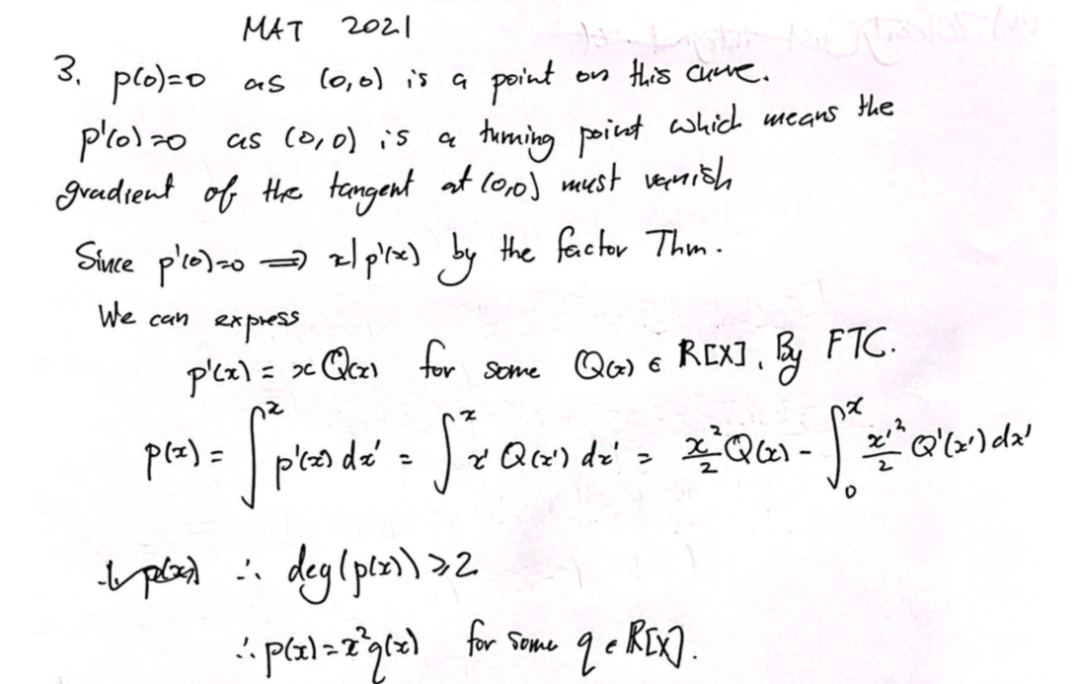 MAT 2021
3. p(0)=0 as (0,0) is a point on this curve.
p'(0)=0 as (0,0) is a turning point which means the
gradient of the tangent at (0,0) must vanish
Since p'(0)=0 ⟹ x|p'(x) by the factor Thm.
We can express
p'(x) = x Q(x) for some Q(x) ∈ R[X]. By FTC.
p(x) = ∫^x p'(x) dx' = ∫^x x' Q(x') dx' = x²/2 Q(x) - ∫_0^x x'²/2 Q'(x') dx'
∴ deg(p(x)) ≥ 2.
∴ p(x) = x²q(x) for some q ∈ R[X].